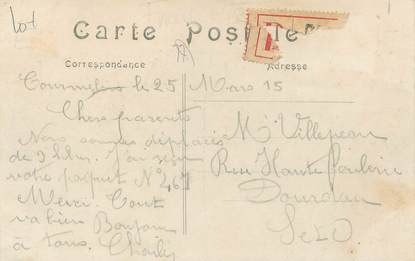 Lot
Carte Postale
Correspondance
Adresse
le 25 Mars 15
Chers parents
Nous sommes déplacés
de J'ai reçu
votre paquet N°
Merci. Tout
va bien Bonjour
à tous. Charles
Mr Villepeau
Rue Haute Foulerie
Dourdan
S et O